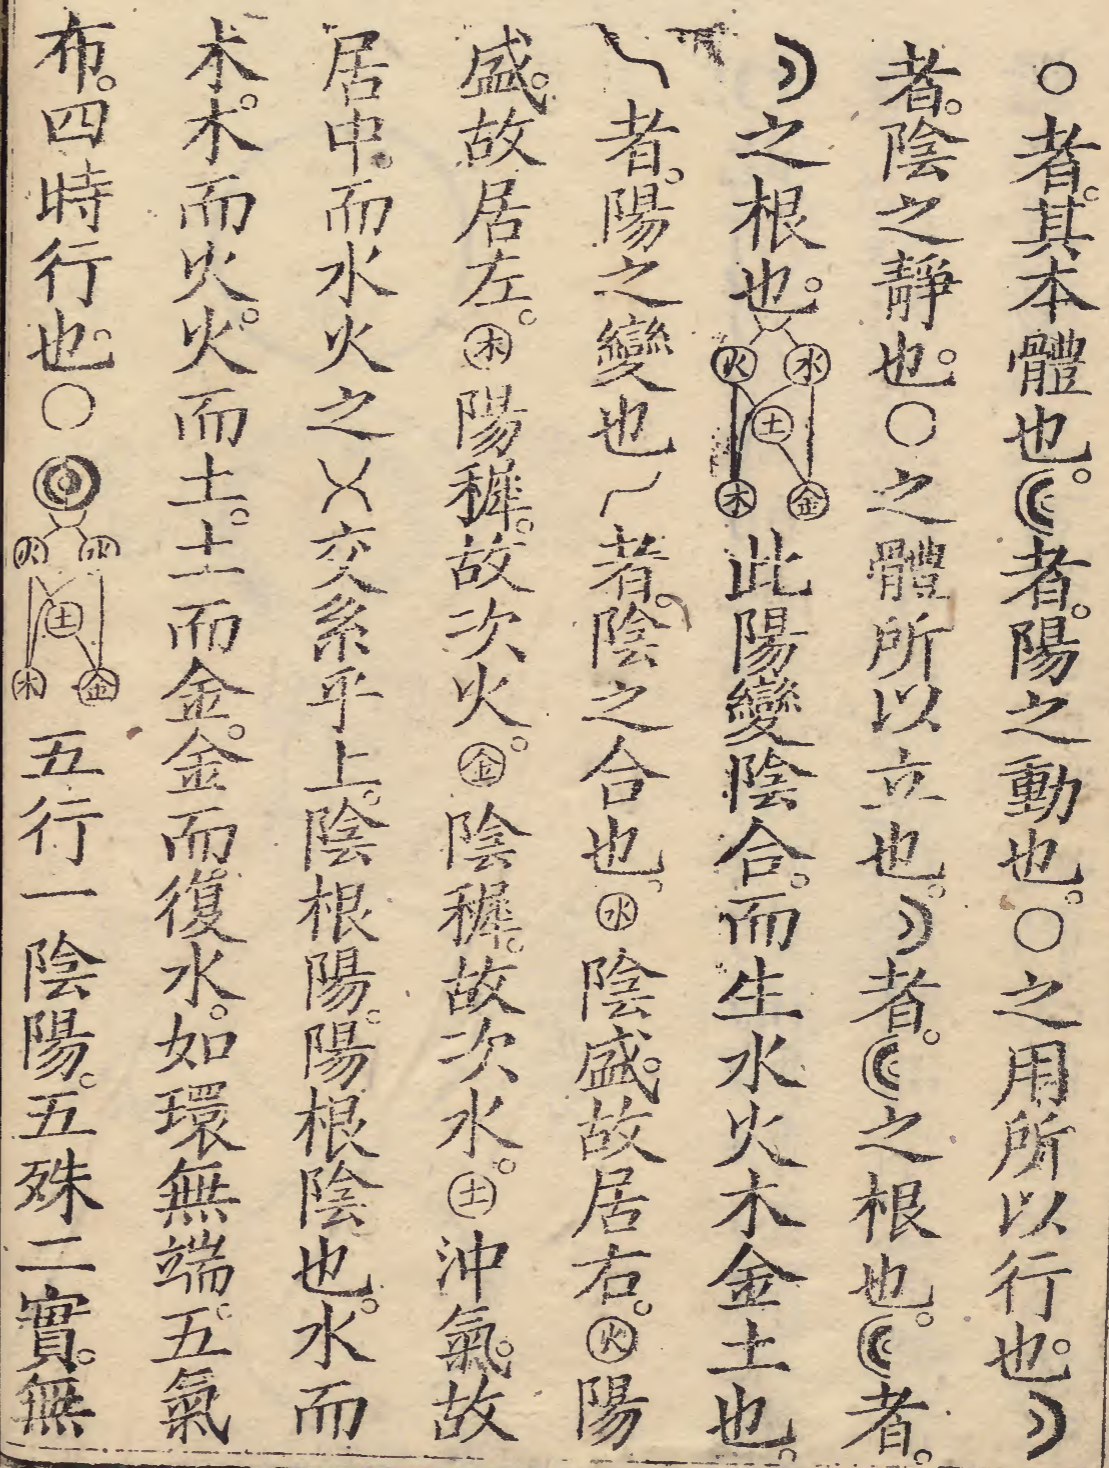 ○者。其本體也。☾者。陽之動也。○之用所以行也。☽
者。陰之靜也。○之體所以立也。☽者。☾之根也。☾者。
☽之根也。火水土木金此陽變陰合。而生水火木金土也。
﹨者。陽之變也㇀者。陰之合也。㊌陰盛。故居右。㊋陽
盛。故居左。㊍陽穉。故次火。㊎陰穉。故次水。㊏沖氣。故
居中。而水火之㐅交系乎上。陰根陽。陽根陰也。水而
木。木而火。火而土。土而金。金而復水。如環無端。五氣
布。四時行也。○◎火水土木金五行一陰陽。五殊二實。無